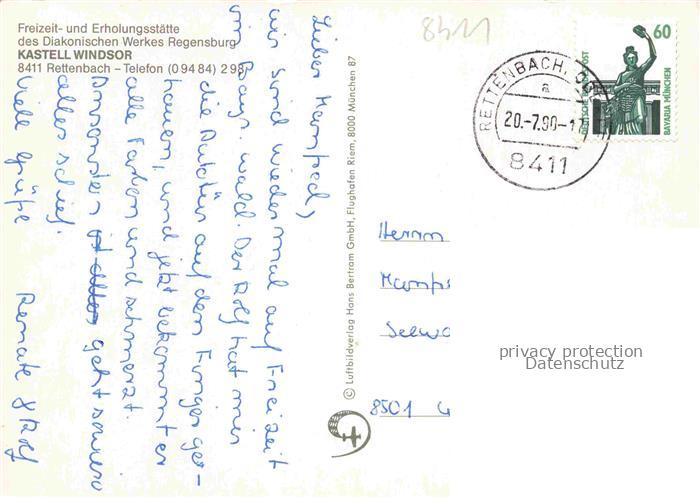 Freizeit- und Erholungsstätte
des Diakonischen Werkes Regensburg
KASTELL WINDSOR
8411 Rettenbach – Telefon (0 94 84) 2 98
8411
Lieber Manfred,
wir sind wieder mal auf Freizeit
im Bayr. Wald. Der Rolf hat mir
die Autotür auf den Finger ge-
hauen, und jetzt bekommt er
alle Farben und schmerzt.
Ansonsten ist alles geht sonst
alles schief.
Viele Grüße
Renate & Rolf
© Luftbildverlag Hans Bertram GmbH, Flughafen Riem, 8000 München 87
RETTENBACH
a
20.-7.90-17
8411
60
DEUTSCHE BUNDESPOST
BAYARIA MÜNCHEN
Herrn
Manf
Seew
8501
privacy protection
Datenschutz